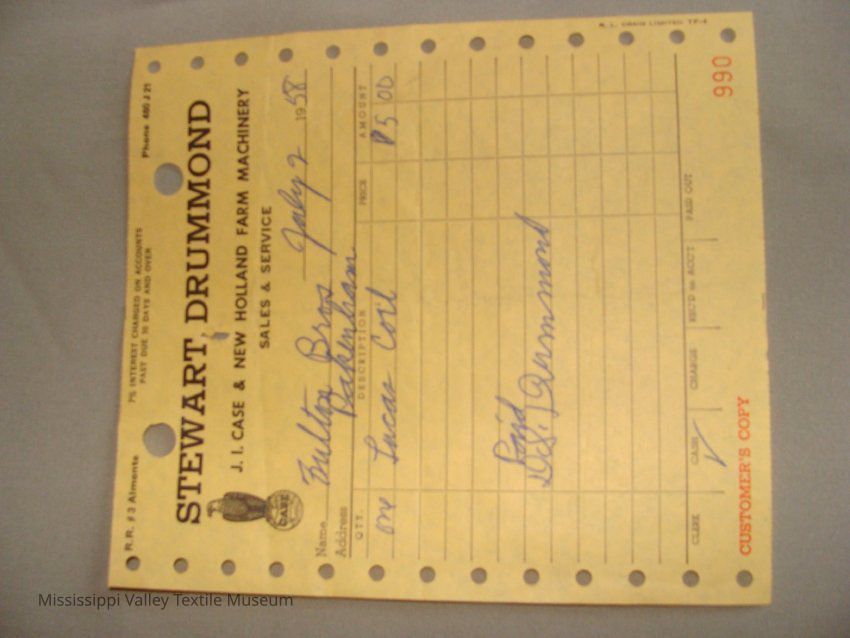 R. L. CRAIN LIMITED TF-4
R.R. #3 Almonte
7% INTEREST CHARGED ON ACCOUNTS
PAST DUE 30 DAYS AND OVER
Phone 460 J 21
STEWART DRUMMOND
J. I. CASE & NEW HOLLAND FARM MACHINERY
SALES & SERVICE
CASE
July 2 1958
Name Fulton Bros
Address Pakenham
QTY. DESCRIPTION PRICE AMOUNT
one Lucas Coil 5 00
Paid
D.S. Drummond
CLERK CASH ✓ CHARGE REC'D on ACCT PAID OUT
CUSTOMER'S COPY
990
Mississippi Valley Textile Museum